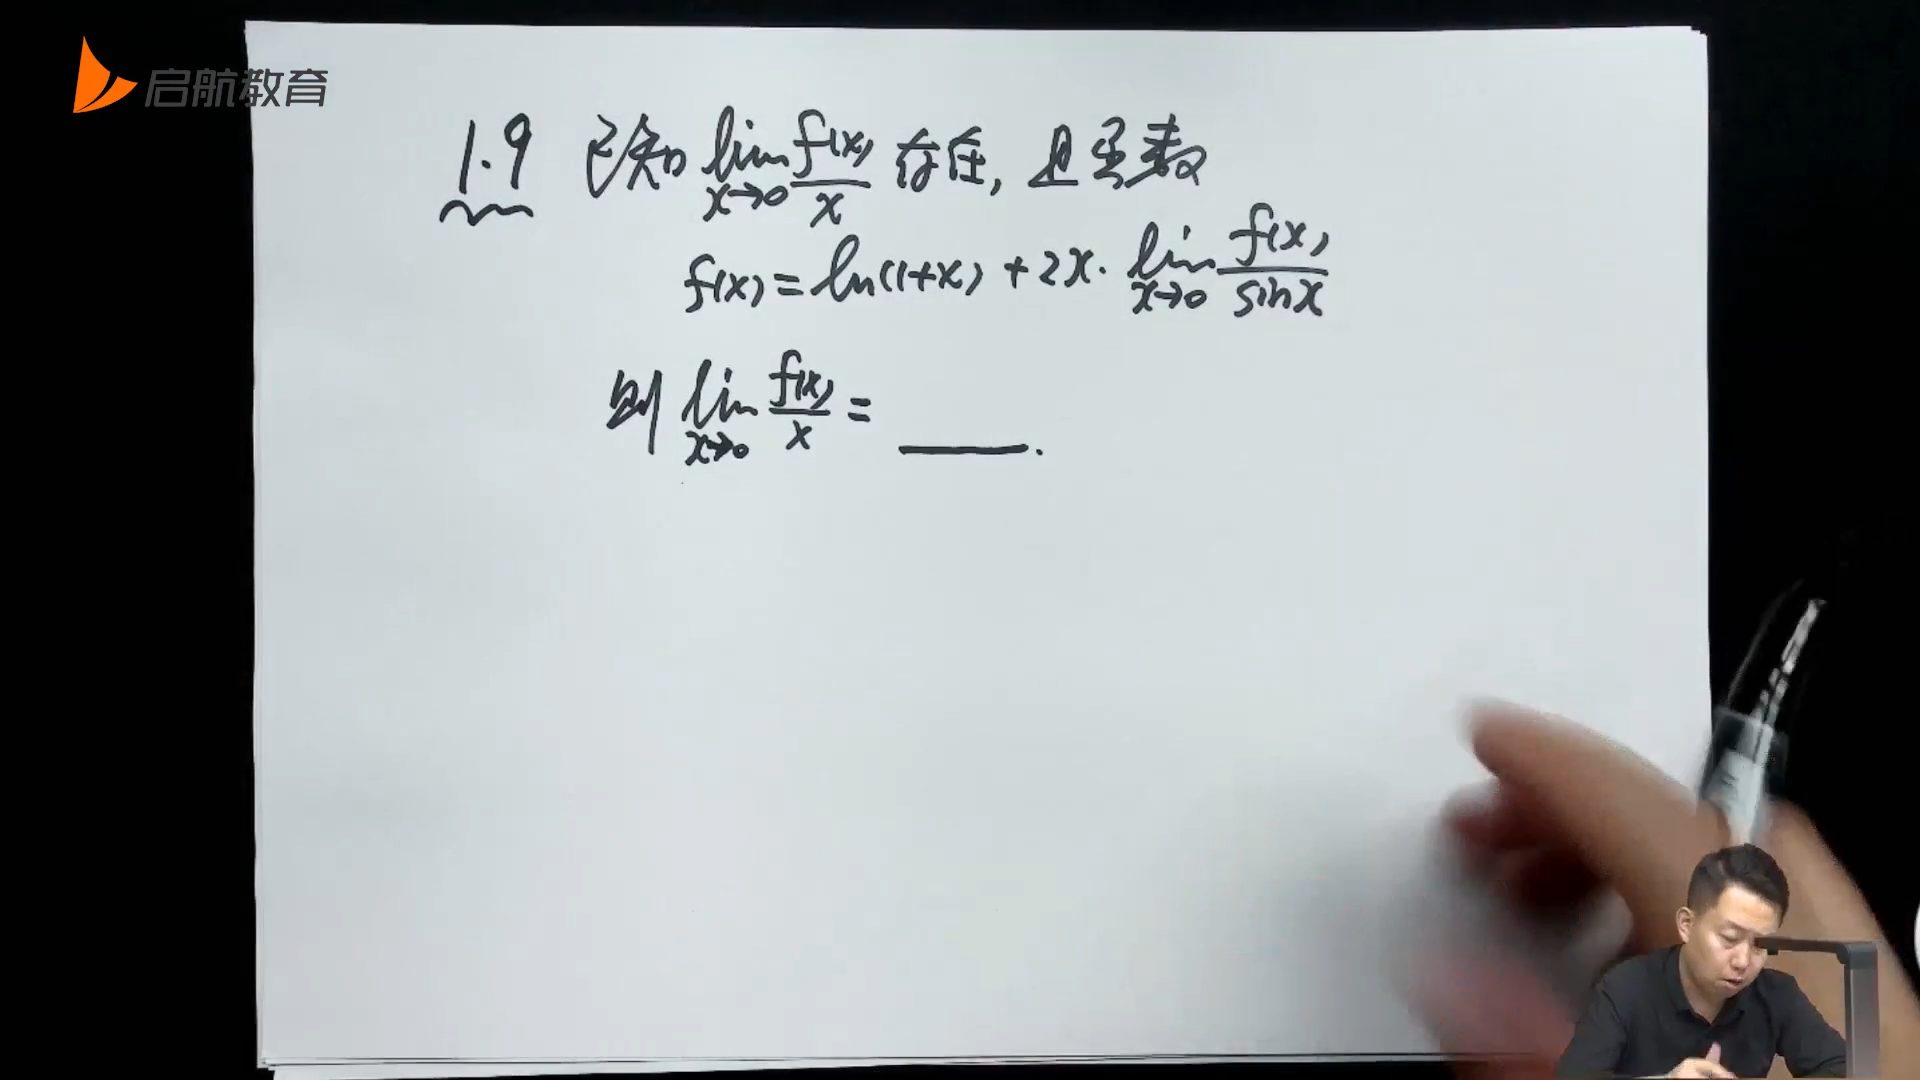 启航教育
1.9 已知 lim_{x→0} f(x)/x 存在, 且函数
f(x) = ln(1+x) + 2x · lim_{x→0} f(x)/sinx
则 lim_{x→0} f(x)/x = ____.